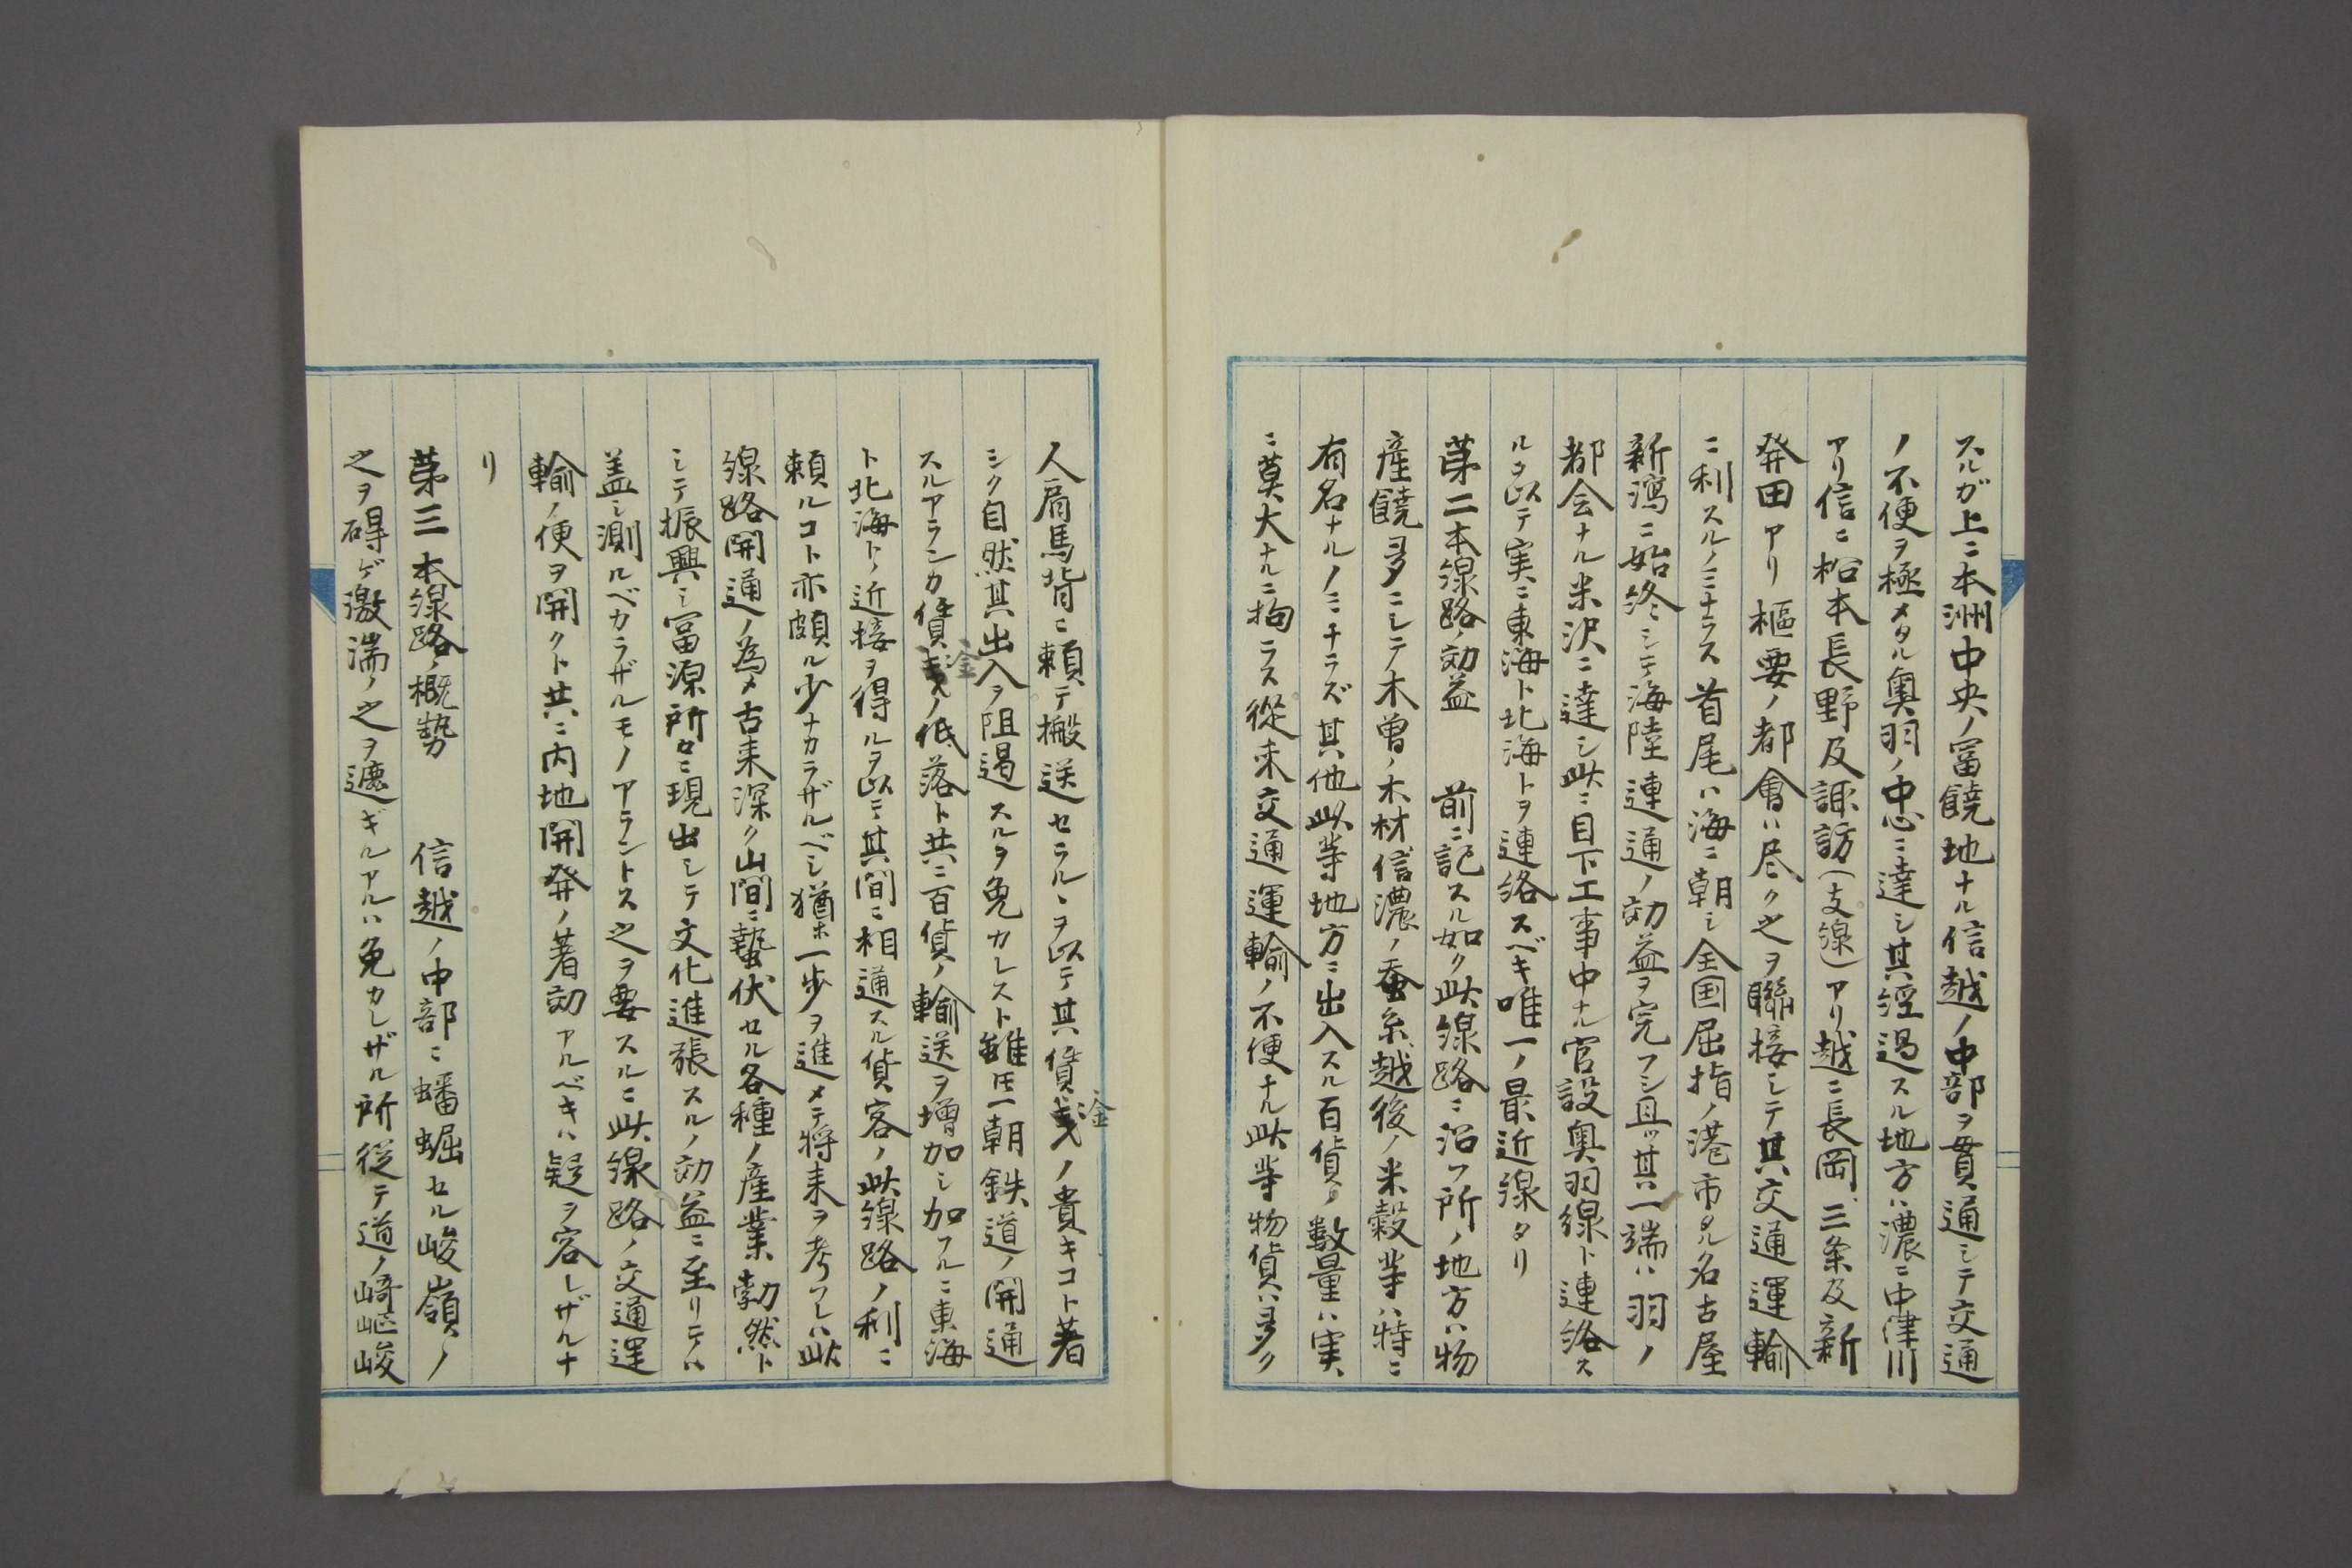 スルガ上ニ本洲中央ノ富饒地ナル信越ノ中部ヲ貫通シテ交通
ノ不便ヲ極メタル奥羽ノ中心ニ達シ其経過スル地方ハ濃ニ中津川
アリ信ニ松本長野及諏訪(支線)アリ越ニ長岡三条及新
発田アリ枢要ノ都會ハ尽ク之ヲ聯接シテ其交通運輸
ニ利スルノミナラス首尾ハ海ニ朝シ全国屈指ノ港市タル名古屋
新潟ニ始終シテ海陸連通ノ効益ヲ完フシ且ツ其一端ハ羽ノ
都会ナル米沢ニ達シ此ニ目下工事中ナル官設奥羽線ト連絡ス
ルヲ以テ実ニ東海ト北海トヲ連絡スベキ唯一ノ最近線タリ
苐二本線路ノ効益　前ニ記スル如ク此線路ニ沿フ所ノ地方ハ物
産饒多ニシテ木曽ノ木材信濃ノ蚕糸越後ノ米穀等ハ特ニ
有名ナルノミナラズ其他此等地方ニ出入スル百貨ノ数量ハ実
ニ莫大ナルニ拘ラス従来交通運輸ノ不便ナル此等物貨ハ多ク
人肩馬背ニ頼テ搬送セラルヽヲ以テ其賃金ノ貴キコト著
シク自然其出入ヲ阻遏スルヲ免カレスト雖𪜈一朝鉄道ノ開通
スルアランカ賃金ノ低落ト共ニ百貨ノ輸送ヲ増加シ加フルニ東海
ト北海トノ近接ヲ得ルヲ以テ其間ニ相通スル貨客ノ此線路ノ利ニ
頼ルコト亦頗ル少ナカラザルベシ猶ホ一歩ヲ進メテ将来ヲ考フレハ此
線路開通ノ為メ古来深ク山間ニ蟄伏セル各種ノ産業勃然ト
シテ振興シ富源所々ニ現出シテ文化進張スルノ効益ニ至リテハ
盖シ測ルベカラザルモノアラントス之ヲ要スルニ此線路ノ交通運
輸ノ便ヲ開クト共ニ内地開発ノ著効アルベキハ疑ヲ容レザルナ
リ
苐三本線路ノ概勢　信越ノ中部ニ蟠崛セル峻嶺ノ
之ヲ碍ゲ激湍ノ之ヲ遮ギルアルハ免カレザル所従テ道ノ崎嶇峻